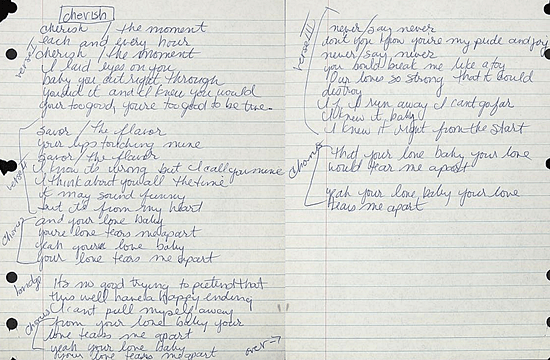 cherish
cherish / the moment
each and every hour
cherish / the moment
I laid eyes on you
baby you cut right through
you did it and I knew you would
your too good, you're too good to be true.
verse I
savor / the flavor
your lips touching mine
savor / the flavor
I know its wrong but I call you mine
I think about you all the time
it may sound funny
but its from my heart
verse II
and your love baby
your love tears me apart
yeah your love baby
your love tears me apart
chorus
It's no good trying to pretend that
this will have a happy ending
I can't pull myself away
bridge
from your love baby your
love tears me apart
yeah your love baby
your love tears me apart
chorus
over →
never / say never
don't you know you're my pride and joy
never / say never
you could break me like a toy
Our loves so strong that it could
destroy
If I run away I cant go far
I knew it, baby
I knew it right from the start
verse III
that your love baby your love
would tear me apart
chorus
yeah your love baby your love
tears me apart